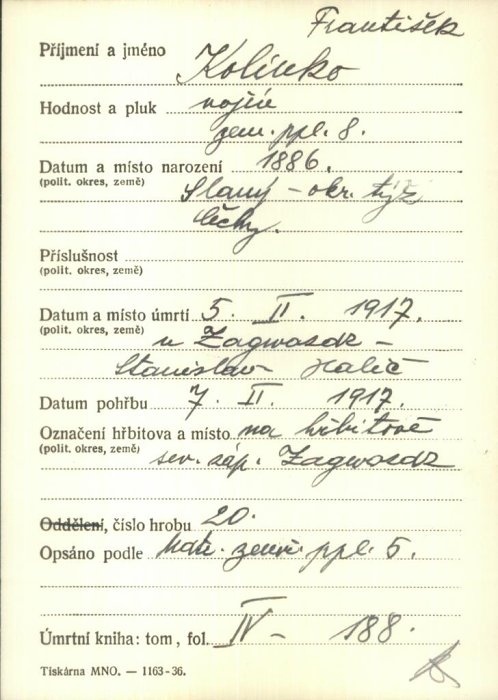 František
Příjmení a jméno Kolinko
Hodnost a pluk vojín
zem. ppl. 8.
Datum a místo narození 1886.
(polit. okres, země) Slaný - okr. týž
Čechy.
Příslušnost
(polit. okres, země)
Datum a místo úmrtí 5. II. 1917.
(polit. okres, země) u Zagwosdz -
Stanislav Halič
Datum pohřbu 7. II. 1917.
Označení hřbitova a místo na hřbitově
(polit. okres, země) sev. záp. Zagwosdz
Oddělení, číslo hrobu 20.
Opsáno podle Matr. zemř. ppl. 5.
Úmrtní kniha: tom, fol. IV - 188.
Tiskárna MNO. — 1163-36.